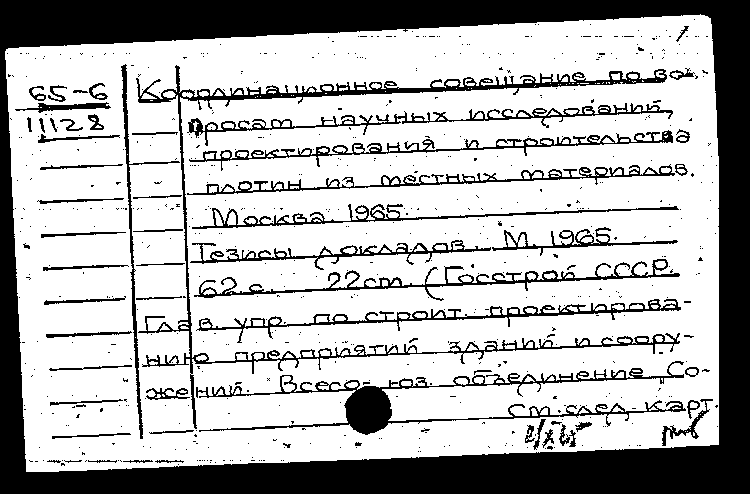 1
65-6 Координационное совещание по во-
11128 просам научных исследований,
проектирования и строительства
плотин из местных материалов.
Москва. 1965.
Тезисы докладов. М., 1965.
62 с. 22 cm. (Госстрой СССР.
Глав. упр. по строит. проектирова-
нию предприятий зданий и соору-
жений. Всесо- юз. объединение „Со-
см. след. карт.